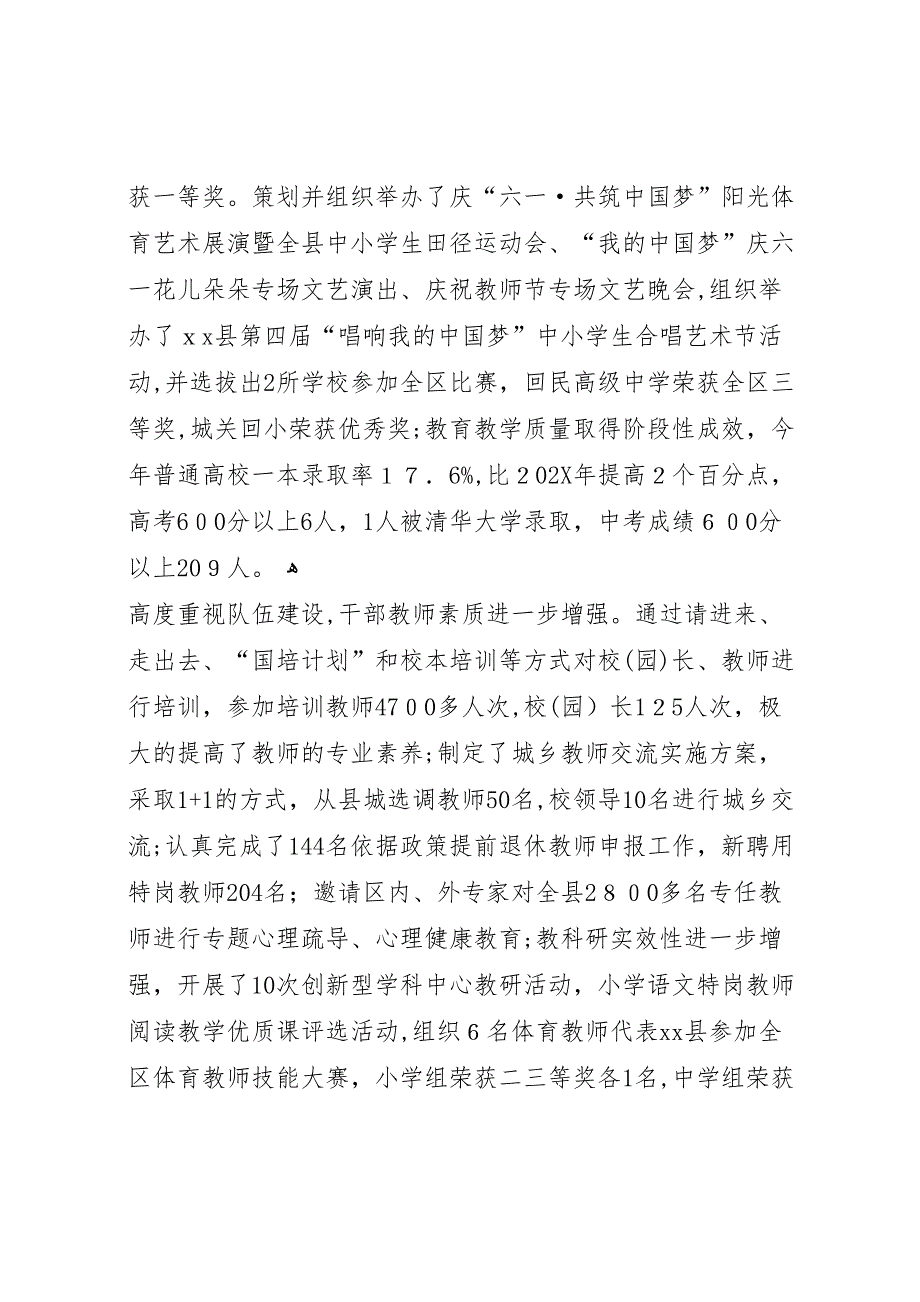 获一等奖。策划并组织举办了庆“六一·共筑中国梦”阳光体
育艺术展演暨全县中小学生田径运动会、“我的中国梦”庆六
一花儿朵朵专场文艺演出、庆祝教师节专场文艺晚会,组织举
办了ｘx县第四届“唱响我的中国梦”中小学生合唱艺术节活
动,并选拔出2所学校参加全区比赛，回民高级中学荣获全区三
等奖,城关回小荣获优秀奖;教育教学质量取得阶段性成效，今
年普通高校一本录取率１７．6%,比２02X年提高２个百分点，
高考6００分以上6人，1人被清华大学录取，中考成绩６００分
以上20９人。 ﻫ
高度重视队伍建设,干部教师素质进一步增强。通过请进来、
走出去、“国培计划”和校本培训等方式对校(园)长、教师进
行培训，参加培训教师4７００多人次,校(园）长1２5人次，极
大的提高了教师的专业素养;制定了城乡教师交流实施方案，
采取1+1的方式，从县城选调教师50名,校领导10名进行城乡交
流;认真完成了144名依据政策提前退休教师申报工作，新聘用
特岗教师204名；邀请区内、外专家对全县2８００多名专任教
师进行专题心理疏导、心理健康教育;教科研实效性进一步增
强，开展了10次创新型学科中心教研活动，小学语文特岗教师
阅读教学优质课评选活动,组织６名体育教师代表xx县参加全
区体育教师技能大赛，小学组荣获二三等奖各1名,中学组荣获